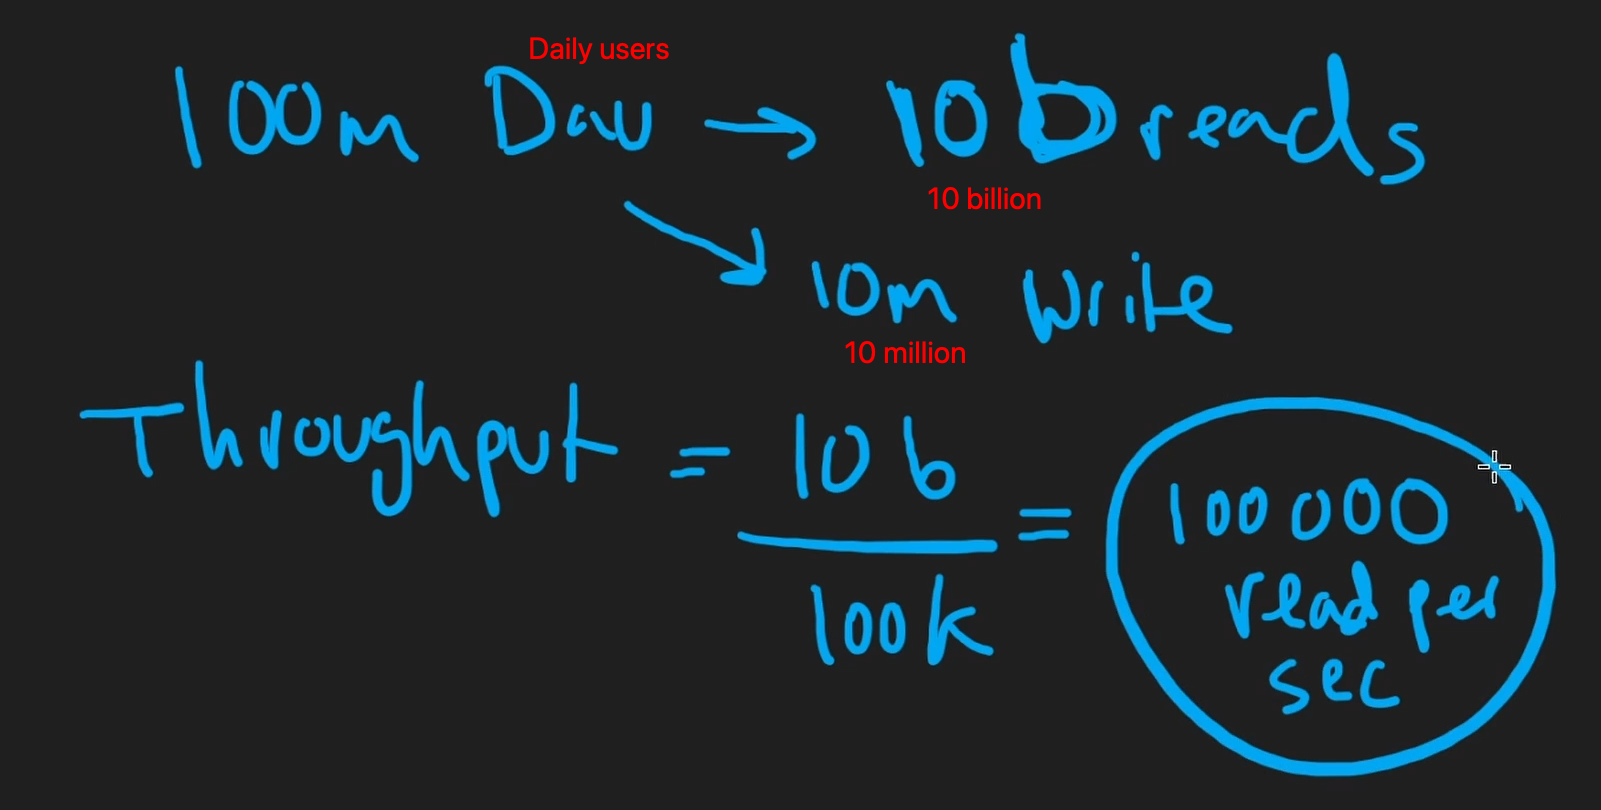 Daily users
100m Dau → 10b reads
10 billion
10m write
10 million
Throughput = 10b / 100k = 100000
read per
sec